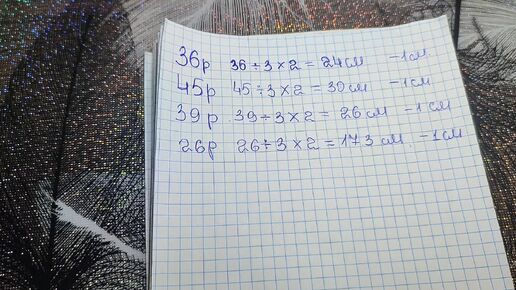 36р 36÷3×2=24см -1см
45р 45÷3×2=30см -1см
39р 39÷3×2=26см -1см
26р 26÷3×2=173см -1см